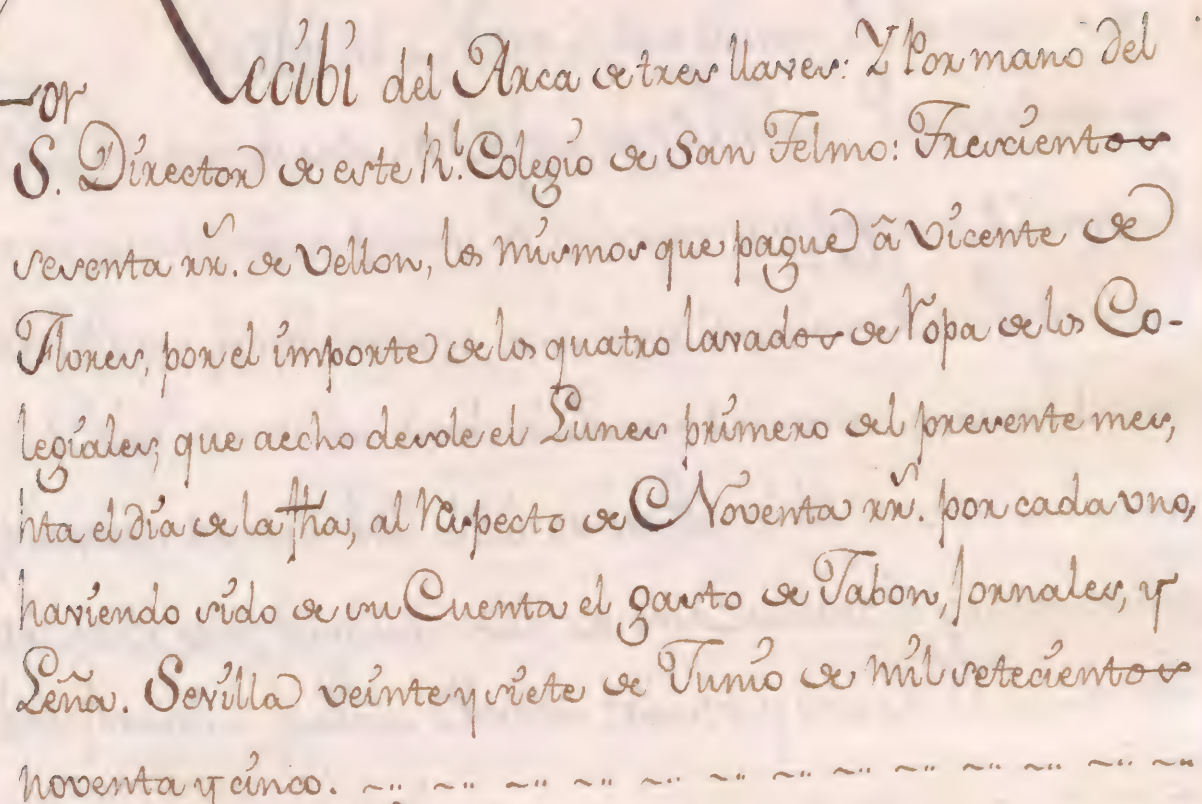 Recibi del Arca de tres llaves: Y Por mano del
S.or Director de este R.l Colegio de San Telmo: Trescientos
sesenta rr.s de Vellon, los mismos que pague â Vicente de
Flores, por el importe de los quatro lavados de ropa de los Co-
legiales, que aecho desde el Lunes primero del presente mes,
hta el dia de la fha, al Respecto de Noventa rr.s por cada vno,
haviendo sido de su Cuenta el gasto de Jabon, Jornales, y
Leña. Sevilla veinte y siete de Junio de mil setecientos
noventa y cinco.